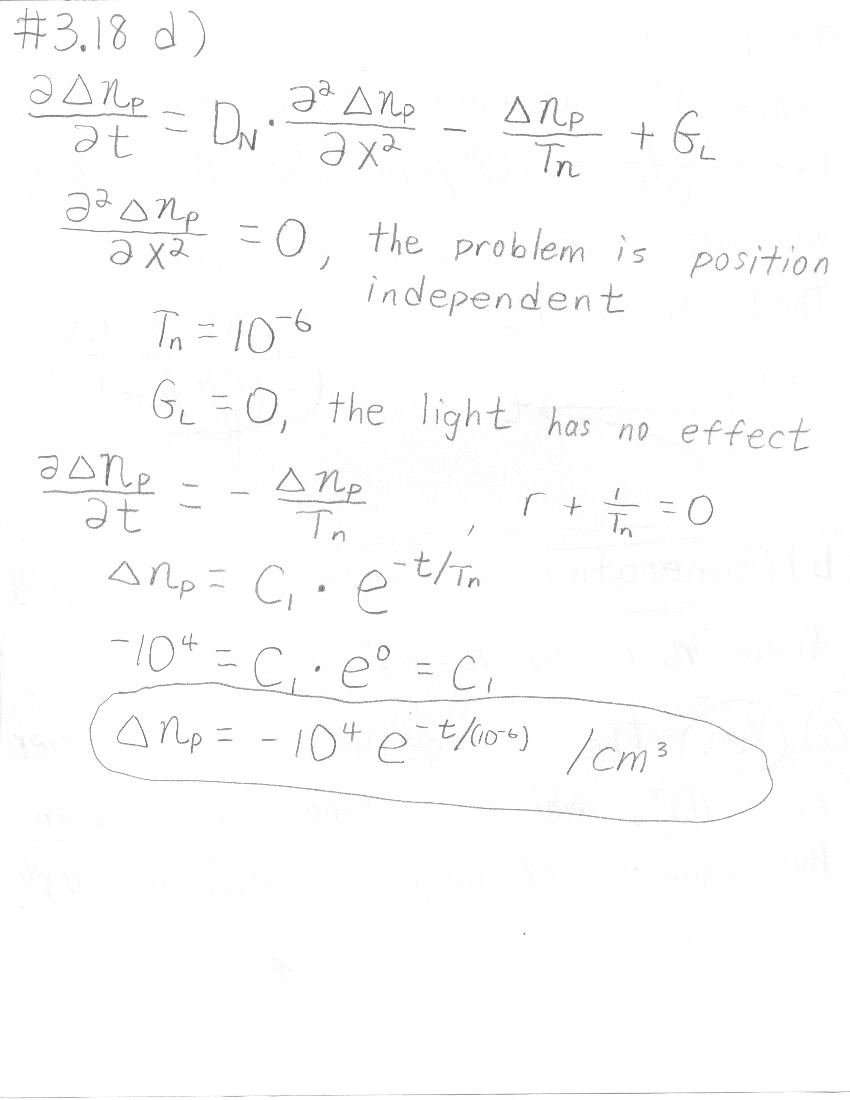 #3.18 d)
∂Δn_p/∂t = D_N · ∂²Δn_p/∂x² − Δn_p/T_n + G_L
∂²Δn_p/∂x² = 0, the problem is position
independent
T_n = 10⁻⁶
G_L = 0, the light has no effect
∂Δn_p/∂t = − Δn_p/T_n , r + 1/T_n = 0
Δn_p = C₁ · e^(−t/T_n)
−10⁴ = C₁ · e⁰ = C₁
Δn_p = −10⁴ e^(−t/(10⁻⁶)) /cm³